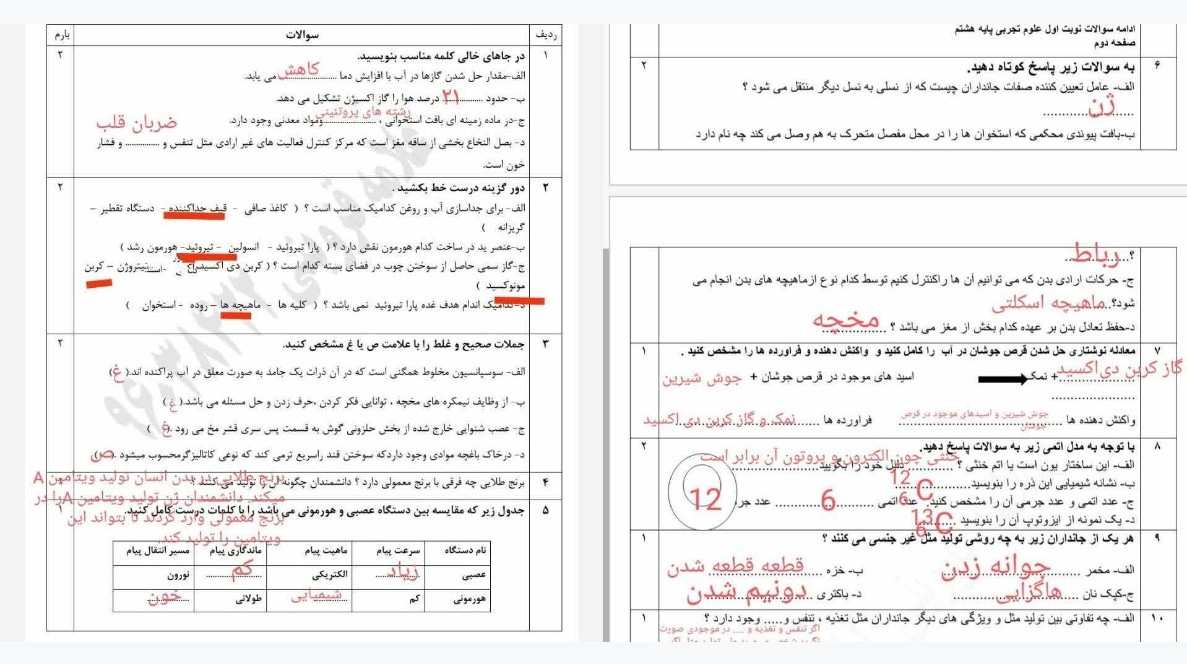 ردیف سوالات بارم
۱ در جاهای خالی کلمه مناسب بنویسید. ۲
الف-مقدار حل شدن گازها در آب با افزایش دما کاهش می یابد.
ب- حدود ۲۱ درصد هوا را گاز اکسیژن تشکیل می دهد.
ج-در ماده زمینه ای بافت استخوانی ، رشته های پروتئینی ومواد معدنی وجود دارد.
ضربان قلب
د- بصل النخاع بخشی از ساقه مغز است که مرکز کنترل فعالیت های غیر ارادی مثل تنفس و ............ و فشار
خون است.
۲ دور گزینه درست خط بکشید . ۲
الف- برای جداسازی آب و روغن کدامیک مناسب است ؟ ( کاغذ صافی - قیف جداکننده - دستگاه تقطیر –
گریزانه )
ب-عنصر ید در ساخت کدام هورمون نقش دارد ؟ ( پارا تیروئید - انسولین - تیروئید- هورمون رشد )
ج-گاز سمی حاصل از سوختن چوب در فضای بسته کدام است ؟ ( کربن دی اکسید نیتروژن – کربن
مونوکسید )
د-کدامیک اندام هدف غده پارا تیروئید نمی باشد ؟ ( کلیه ها - ماهیچه ها – روده - استخوان )
۳ جملات صحیح و غلط را با علامت ص یا غ مشخص کنید. ۲
الف- سوسپانسیون مخلوط همگنی است که در آن ذرات یک جامد به صورت معلق در آب پراکنده اند.( غ )
ب- از وظایف نیمکره های مخچه ، توانایی فکر کردن ،حرف زدن و حل مسئله می باشد.( غ )
ج- عصب شنوایی خارج شده از بخش حلزونی گوش به قسمت پس سری قشر مخ می رود .( غ )
د- درخاک باغچه موادی وجود داردکه سوختن قند راسریع ترمی کند که نوعی کاتالیزگرمحسوب میشود .( ص )
۴ برنج طلایی چه فرقی با برنج معمولی دارد ؟ دانشمندان چگونه آن را تولید می کنند ؟
برنج طلایی در بدن انسان تولید ویتامین A
میکند. دانشمندان ژن تولید ویتامین A را در
برنج معمولی وارد کردند تا بتواند این
ویتامین را تولید کند.
۵ جدول زیر که مقایسه بین دستگاه عصبی و هورمونی می باشد را با کلمات درست کامل کنید. ۱
نام دستگاه سرعت پیام ماهیت پیام ماندگاری پیام مسیر انتقال پیام
عصبی زیاد الکتریکی کم نورون
هورمونی کم شیمیایی طولانی خون
ادامه سوالات نوبت اول علوم تجربی پایه هشتم
صفحه دوم
۶ به سوالات زیر پاسخ کوتاه دهید. ۲
الف- عامل تعیین کننده صفات جانداران چیست که از نسلی به نسل دیگر منتقل می شود ؟
ژن
ب-بافت پیوندی محکمی که استخوان ها را در محل مفصل متحرک به هم وصل می کند چه نام دارد
؟ رباط
ج- حرکات ارادی بدن که می توانیم آن ها راکنترل کنیم توسط کدام نوع ازماهیچه های بدن انجام می
شود؟ ماهیچه اسکلتی
د-حفظ تعادل بدن بر عهده کدام بخش از مغز می باشد ؟ مخچه
۷ معادله نوشتاری حل شدن قرص جوشان در آب را کامل کنید و واکنش دهنده و فراورده ها را مشخص کنید . ۱
اسید های موجود در قرص جوشان + جوش شیرین نمک + گاز کربن دی‌اکسید
واکنش دهنده ها جوش شیرین و اسیدهای موجود در قرص جوشان فراورده ها نمک و گاز کربن دی اکسید
۸ با توجه به مدل اتمی زیر به سوالات پاسخ دهید. ۲
الف- این ساختار یون است یا اتم خنثی ؟ دلیل خود را بگویید
خنثی چون الکترون و پروتون آن برابر است
ب- نشانه شیمیایی این ذره را بنویسید. 12 6 C
ج- عدد اتمی و عدد جرمی آن را مشخص کنید. عدد اتمی 6 عدد جرمی 12
د- یک نمونه از ایزوتوپ آن را بنویسید 13 6 C
۹ هر یک از جانداران زیر به چه روشی تولید مثل غیر جنسی می کنند ؟ ۱
الف- مخمر جوانه زدن ب- خزه قطعه قطعه شدن
ج-کپک نان هاگزایی د- باکتری دونیم شدن
۱۰ الف- چه تفاوتی بین تولید مثل و ویژگی های دیگر جانداران مثل تغذیه ، تنفس و..... وجود دارد ؟ ۱
اگر تنفس و تغذیه و .... در موجودی صورت